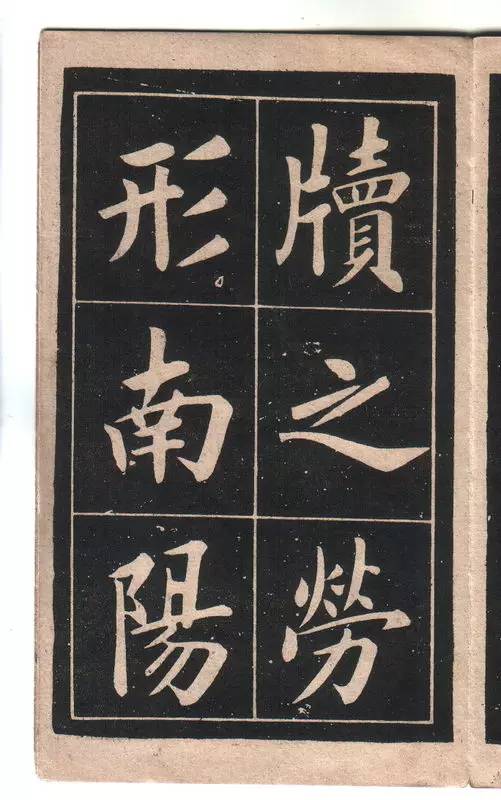 牘之勞
形南陽